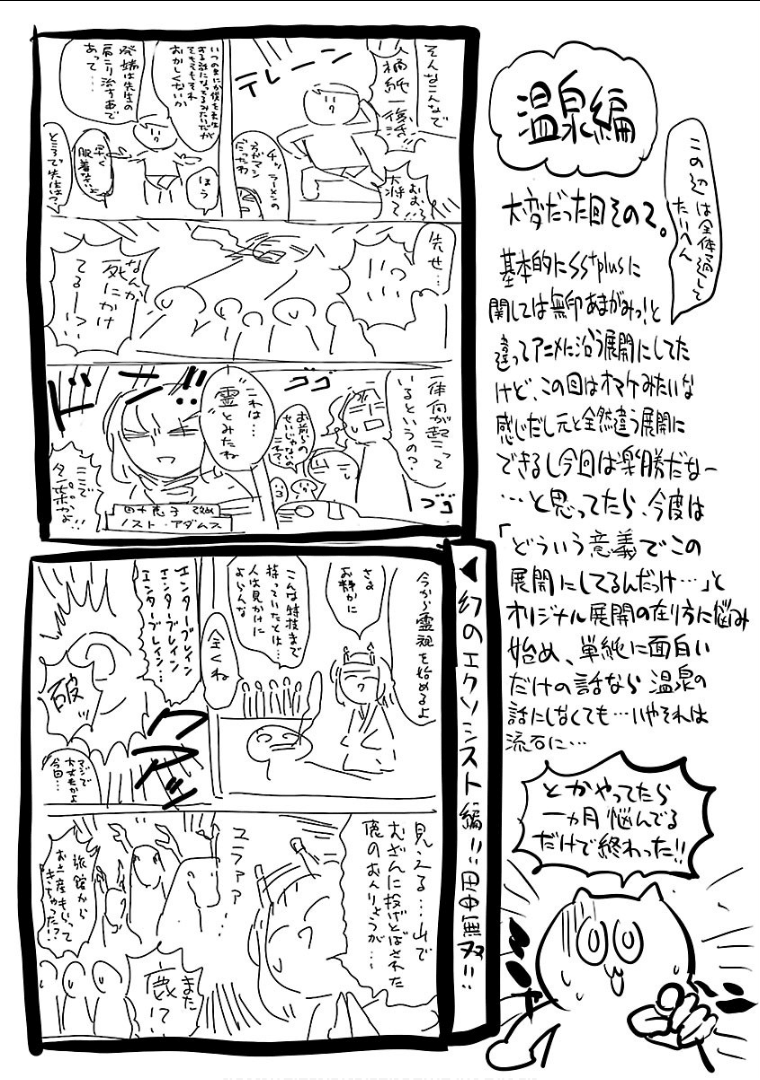 温泉編
この辺は全体通して
たいへん
大変だった回その2。
基本的にSS+plusに
関しては無印あまがみっ!と
違ってアニメに沿う展開にしてた
けど、この回はオマケみたいな
感じだし元と全然違う展開に
できるし今回は楽勝だなー
…と思ってたら、今度は
「どういう意義でこの
展開にしてるんだっけ…」と
オリジナル展開の在り方に悩み
始め、単純に面白い
だけの話なら温泉の
話にしなくても…いやそれは
流石に…
とかやってたら
一ヵ月悩んでる
だけで終わった!!
そんなこんなで
橘純一復活!!
テレーン
おお…!!
大将て
チッ ラーメンの
いつのまにか僕を
おかしくないか
発端は先生の
肩こり治す為で
あって…
早く
服着なさいよ
ほう
ところで先生は?
先せ…
いっ…
なんか
死にかけ
てるーっ!?
一体何が起こって
いるというの?
ゴゴ
ゴゴ
お前らの
せいじゃないの
これ?
これは…
“霊”とみたわ
ドドーン
ここで
田中恵子 改め
ノスト・アダムス
◀幻のエクソシスト編!!田中無双!!
今から霊視を始めるよ
さぁ
お静かに
こんな特技まで
持っていたとは…
人は見かけに
よらんな
全くね
エンターブレイン
エンターブレイン
エンターブレイン…
破ッ
クワッ
マジで
大丈夫かよ
今回…
見える…山で
むざんに投げとばされた
鹿のおんりょうが…
ユラァァァ
旅館から
お土産もらって
きちゃった!?
また
鹿!?